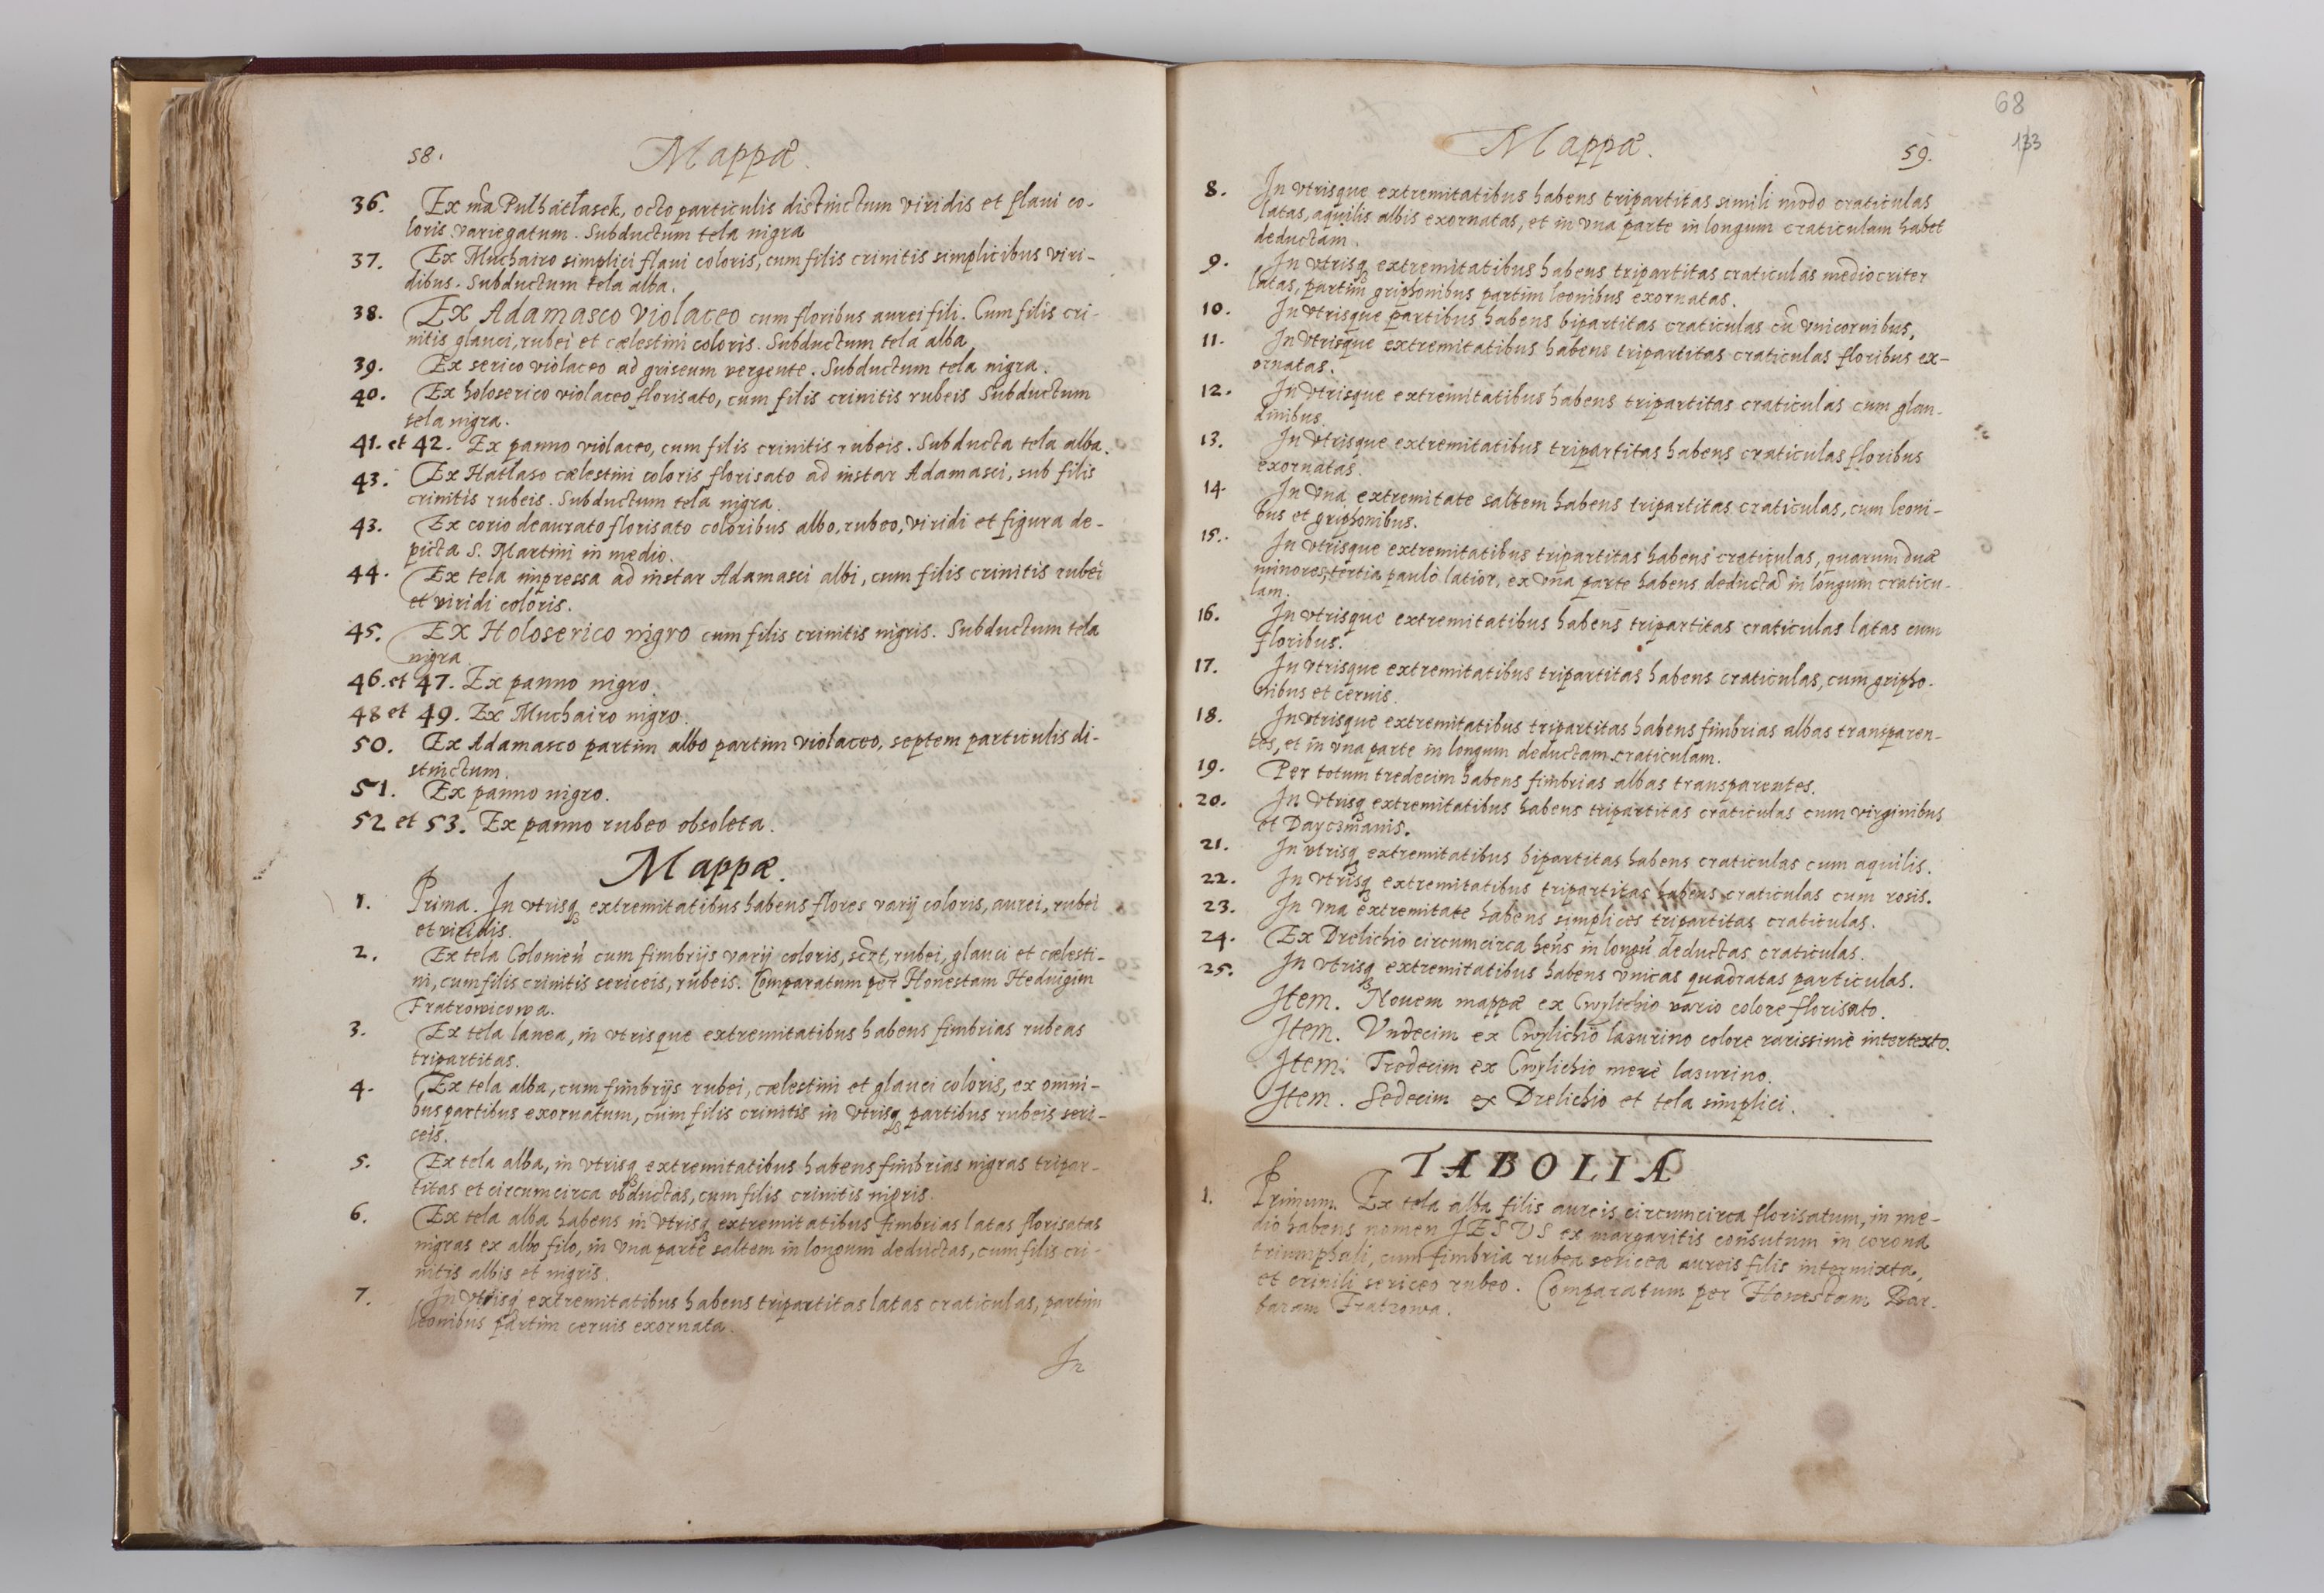 58.
Mappæ.
36. Ex ma Pulhatłasek, octo particulis distinctum viridis et flaui co-
loris variegatum. Subductum tela nigra
37. Ex Muchairo simplici flaui coloris, cum filis crinitis simplicibus viri-
dibus. Subductum tela alba.
38. Ex Adamasco violaceo cum floribus aurei fili. Cum filis cri-
nitis glauci, rubei et cælestini coloris. Subductum tela alba
39. Ex serico violaceo ad griseum vergente. Subductum tela nigra.
40. Ex holoserico violaceo florisato, cum filis crinitis rubeis Subductum
tela nigra.
41. et 42. Ex panno violaceo, cum filis crinitis rubeis. Subducta tela alba.
43. Ex Hatłaso cælestini coloris florisato ad instar Adamasci, sub filis
crinitis rubeis. Subductum tela nigra.
43. Ex corio deaurato florisato coloribus albo, rubeo, viridi et figura de-
picta S. Martini in medio.
44. Ex tela impressa ad instar Adamasci albi, cum filis crinitis rubei
et viridi coloris.
45. Ex Holoserico nigro cum filis crinitis nigris. Subductum tela
nigra
46. et 47. Ex panno nigro.
48 et 49. Ex Muchairo nigro.
50. Ex Adamasco partim albo partim violaceo, septem particulis di-
stinctum.
51. Ex panno nigro.
52 et 53. Ex panno rubeo obsoleta.
Mappæ.
1. Prima. In vtrisq extremitatibus habens flores varij coloris, aurei, rubei
et viridis.
2. Ex tela Colonien cum fimbrijs varij coloris, sczt, rubei, glauci et cælesti-
ni, cum filis crinitis sericeis, rubeis. Comparatum per Honestam Heduigim
Fratrowicowa.
3. Ex tela lanea, in vtrisque extremitatibus habens fimbrias rubeas
tripartitas.
4. Ex tela alba, cum fimbrijs rubei, cælestini et glauci coloris, ex omni-
bus partibus exornatum, cum filis crinitis in vtrisq partibus rubeis seri-
ceis.
5. Ex tela alba, in vtrisq extremitatibus habens fimbrias nigras tripar-
titas et circumcirca obductas, cum filis crinitis nigris.
6. Ex tela alba habens in vtrisq extremitatibus fimbrias latas florisatas
nigras ex albo filo, in vna parte saltem in longum deductas, cum filis cri-
nitis albis et nigris.
7. In vtrisq extremitatibus habens tripartitas latas craticulas, partim
leonibus partim ceruis exornata.
In
68
133
Mappæ.
59.
8. In vtrisque extremitatibus habens tripartitas simili modo craticulas
latas, aquilis albis exornatas, et in vna parte in longum craticulam habet
deductam.
9. In vtrisq extremitatibus habens tripartitas craticulas mediocriter
latas, partim griphonibus partim leonibus exornatas.
10. In vtrisque partibus habens bipartitas craticulas cū vnicornibus,
11. In vtrisque extremitatibus habens tripartitas craticulas floribus ex-
ornatas.
12. In vtrisque extremitatibus habens tripartitas craticulas cum glan-
dinibus.
13. In vtrisque extremitatibus tripartitas habens craticulas floribus
exornatas.
14. In vna extremitate saltem habens tripartitas craticulas, cum leoni-
bus et griphonibus.
15. In vtrisque extremitatibus tripartitas habens craticulas, quarum duæ
minores, tertia paulò latior, ex vna parte habens deductā in longum craticu-
lam.
16. In vtrisque extremitatibus habens tripartitas craticulas latas cum
floribus.
17. In vtrisque extremitatibus tripartitas habens craticulas, cum gripho-
nibus et ceruis.
18. In vtrisque extremitatibus tripartitas habens fimbrias albas transparen-
tes, et in vna parte in longum deductam craticulam.
19. Per totum tredecim habens fimbrias albas transparentes.
20. In vtrisq extremitatibus habens tripartitas craticulas cum virginibus
et Dayczmanis.
21. In vtrisq extremitatibus bipartitas habens craticulas cum aquilis.
22. In vtrisq extremitatibus tripartitas habens craticulas cum rosis.
23. In vna extremitate habens simplices tripartitas craticulas.
24. Ex Drelichio circumcirca hens in longū deductas craticulas.
25. In vtrisq extremitatibus habens vnicas quadratas particulas.
Item. Nouem mappæ ex Cwylichio vario colore florisato.
Item. Vndecim ex Cwylichio lasurino colore rarissimè intertexto.
Item. Tredecim ex Cwylichio merè lasurino.
Item. Sedecim ex Drelichio et tela simplici.
TABOLIA
1. Primum. Ex tela alba filis aureis circumcirca florisatum, in me-
dio habens nomen JESVS ex margaritis consutum in corona
triumphali, cum fimbria rubea sericea aureis filis intermixta,
et crinili sericeo rubeo. Comparatum per Honestam Bar-
baram Fratzowa.